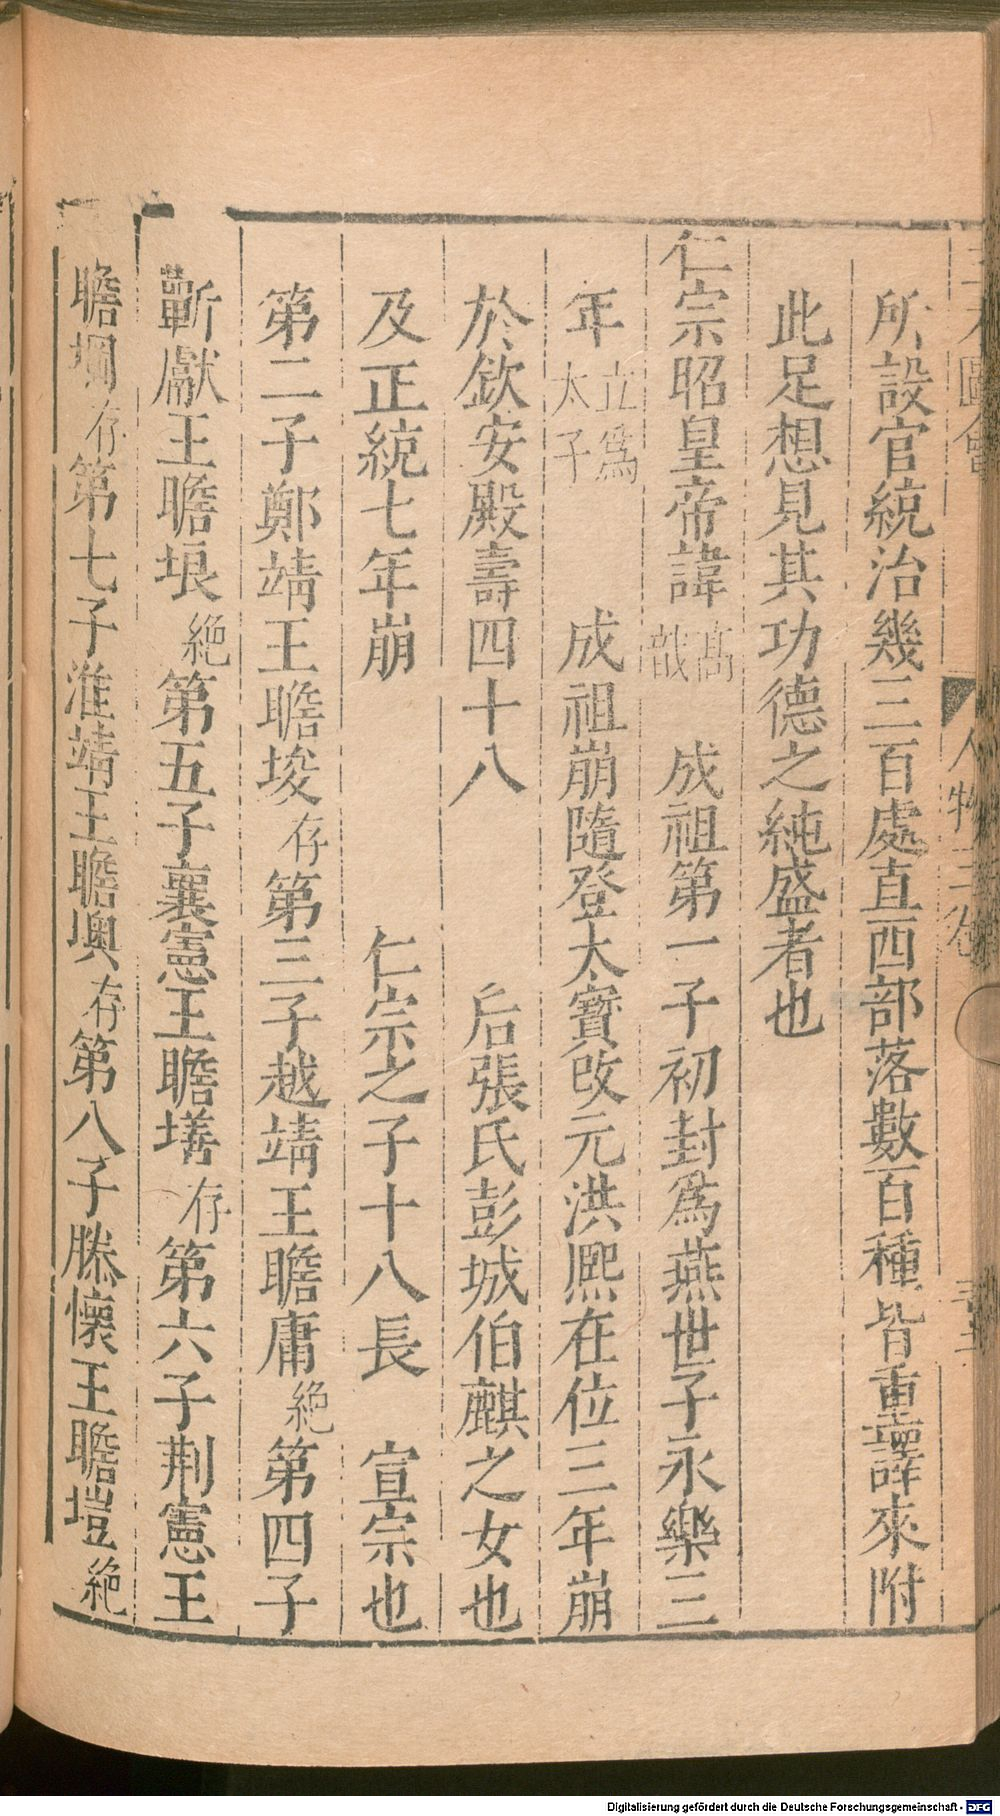 三才圖會 人物三卷
所設官統治幾三百處直西部落數百種皆重譯來附
此足想見其功德之純盛者也
仁宗昭皇帝諱高熾 成祖第一子初封為燕世子永樂三
年立為太子 成祖崩隨登大寶改元洪熈在位三年崩
於欽安殿壽四十八 后張氏彭城伯麒之女也
及正統七年崩 仁宗之子十八長 宣宗也
第二子鄭靖王瞻埈存第三子越靖王瞻庸絕第四子
蘄獻王瞻垠絕第五子襄憲王瞻墡存第六子荆憲王
瞻堈存第七子淮靖王瞻墺存第八子滕懷王瞻塏絕
Digitalisierung gefördert durch die Deutsche Forschungsgemeinschaft - DFG